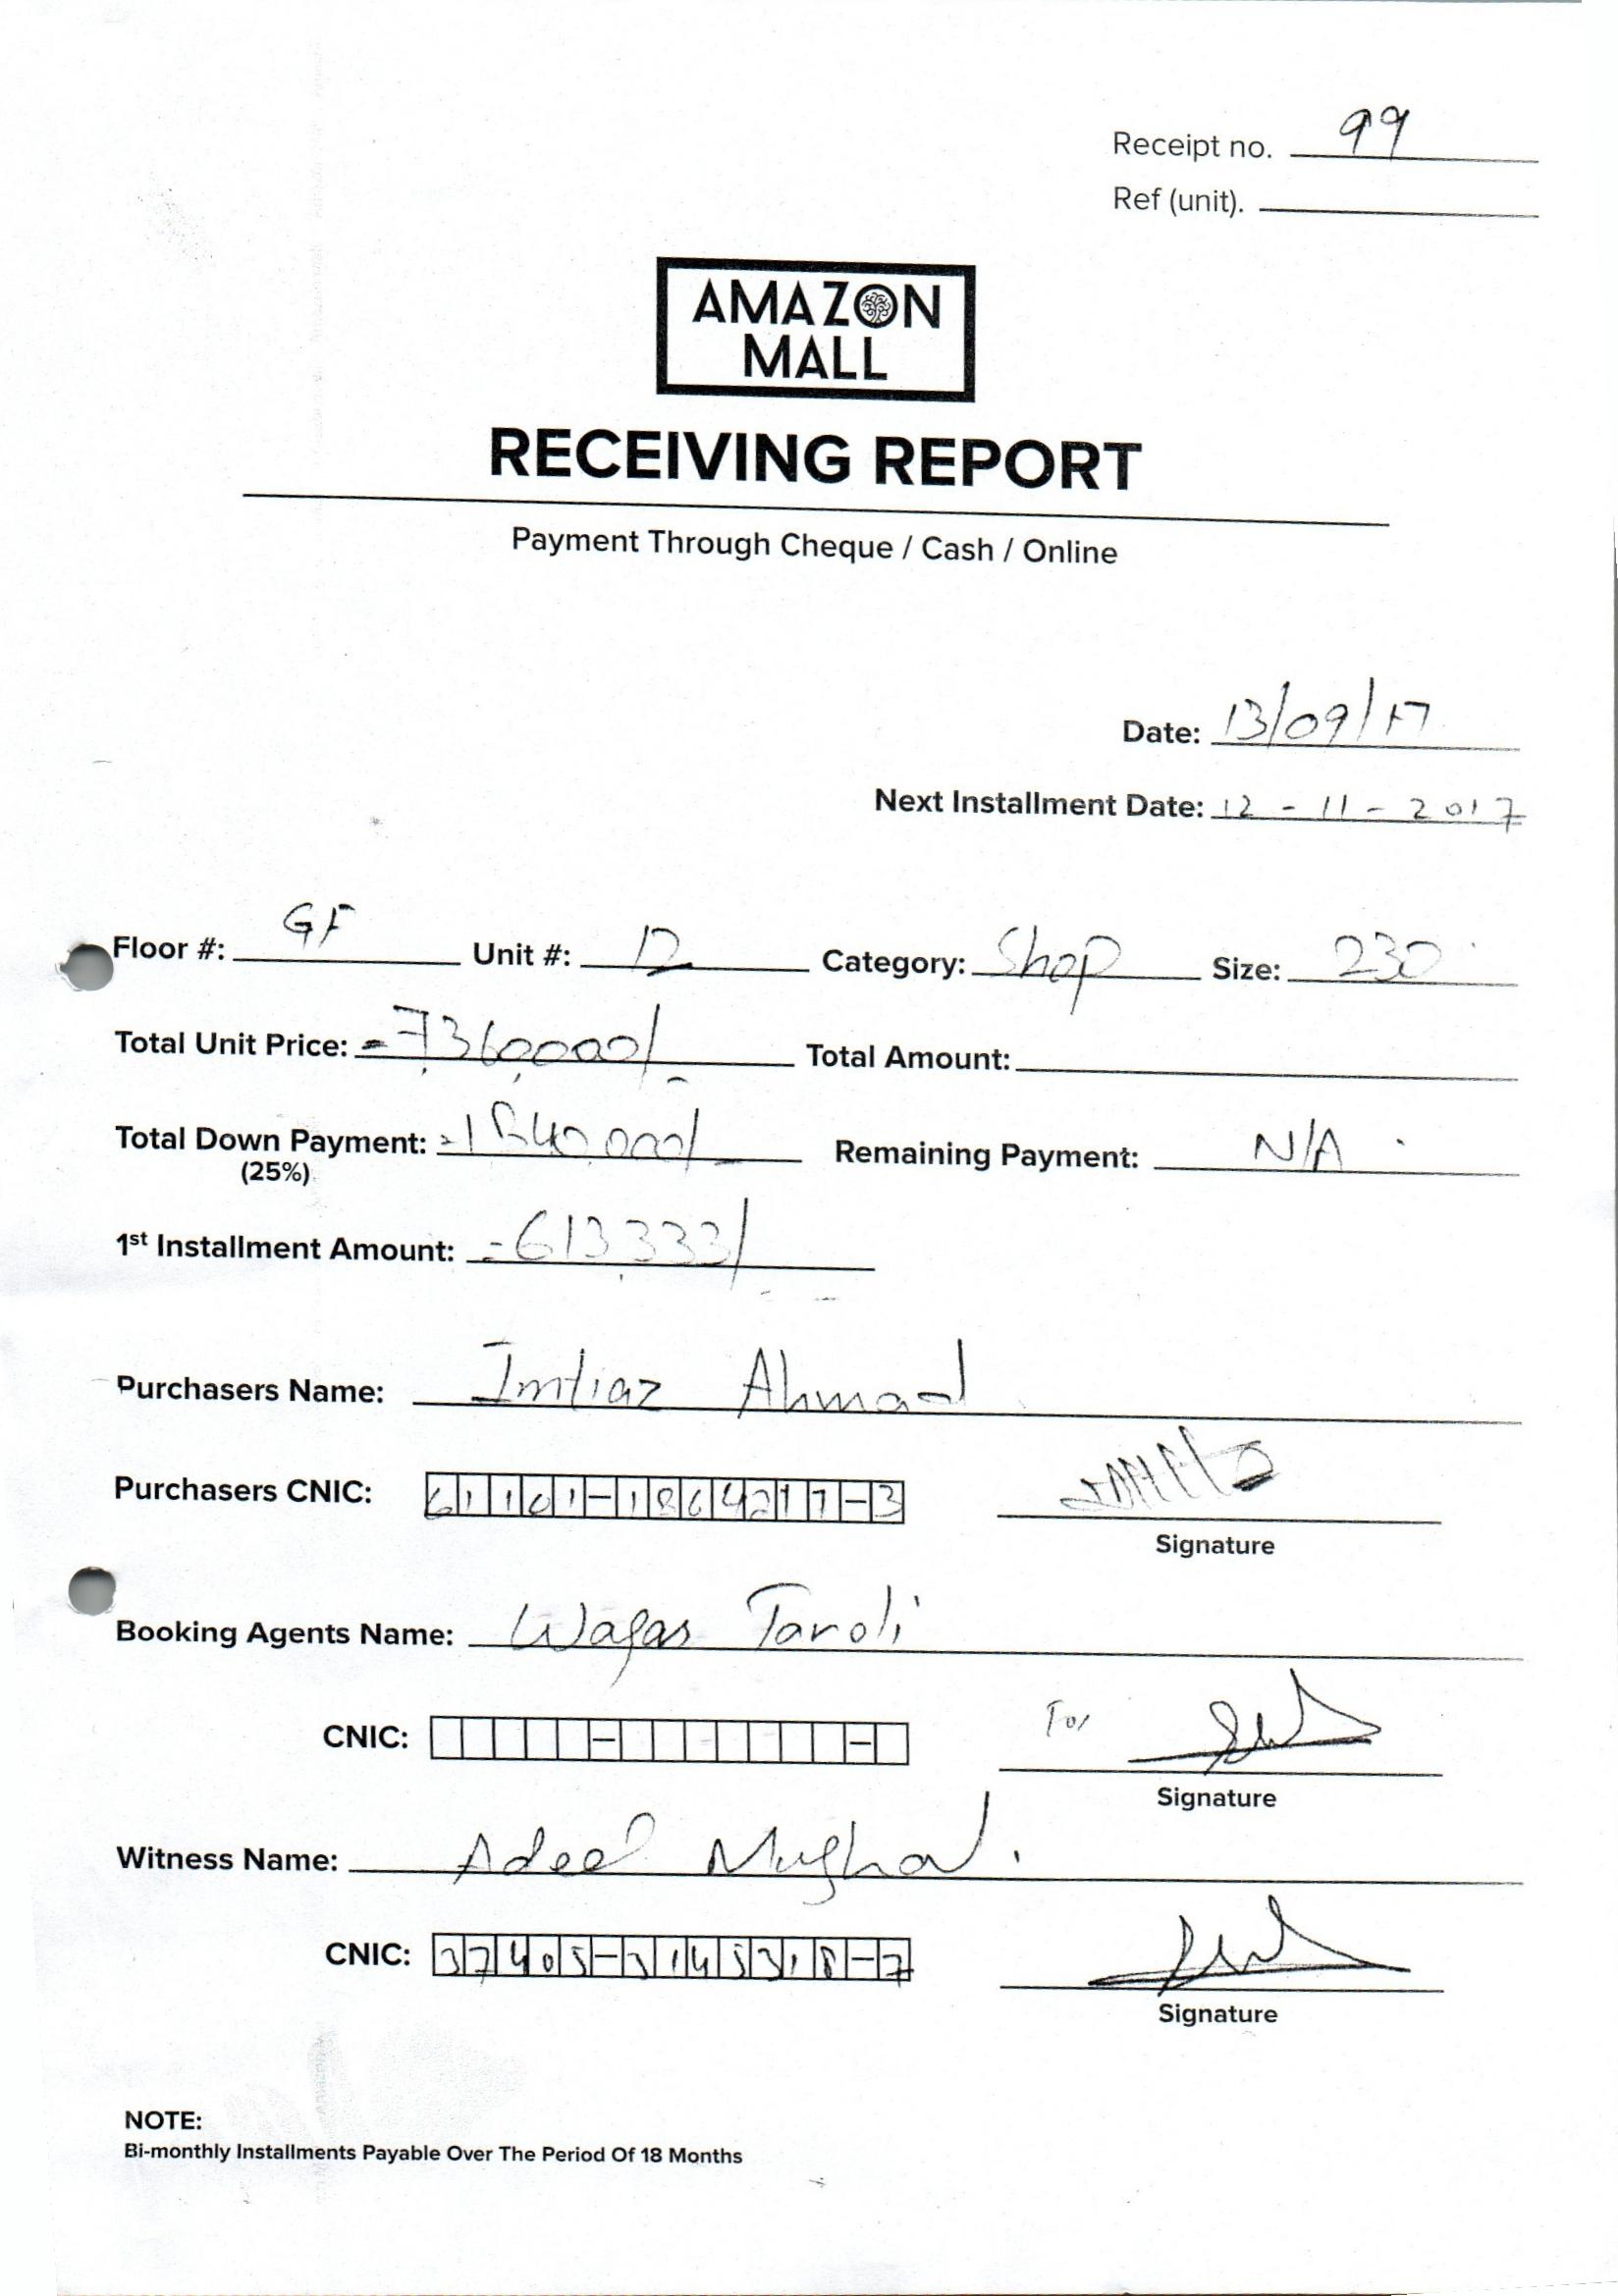 Receipt no. 99
Ref (unit).
AMAZON
MALL
RECEIVING REPORT
Payment Through Cheque / Cash / Online
Date: 13/09/17
Next Installment Date: 12 - 11 - 2017
Floor #: GF Unit #: 12 Category: Shop Size: 230
Total Unit Price: =7360000/ Total Amount:
Total Down Payment: =1840,000/ Remaining Payment: N/A
(25%)
1st Installment Amount: =613,333/
Purchasers Name: Imtiaz Ahmad
Purchasers CNIC: 61101-1864217-3
Signature
Booking Agents Name: Waqas Taroli
CNIC: - - For
Signature
Witness Name: Adeel Mughal.
CNIC: 37405-3145318-7
Signature
NOTE:
Bi-monthly Installments Payable Over The Period Of 18 Months